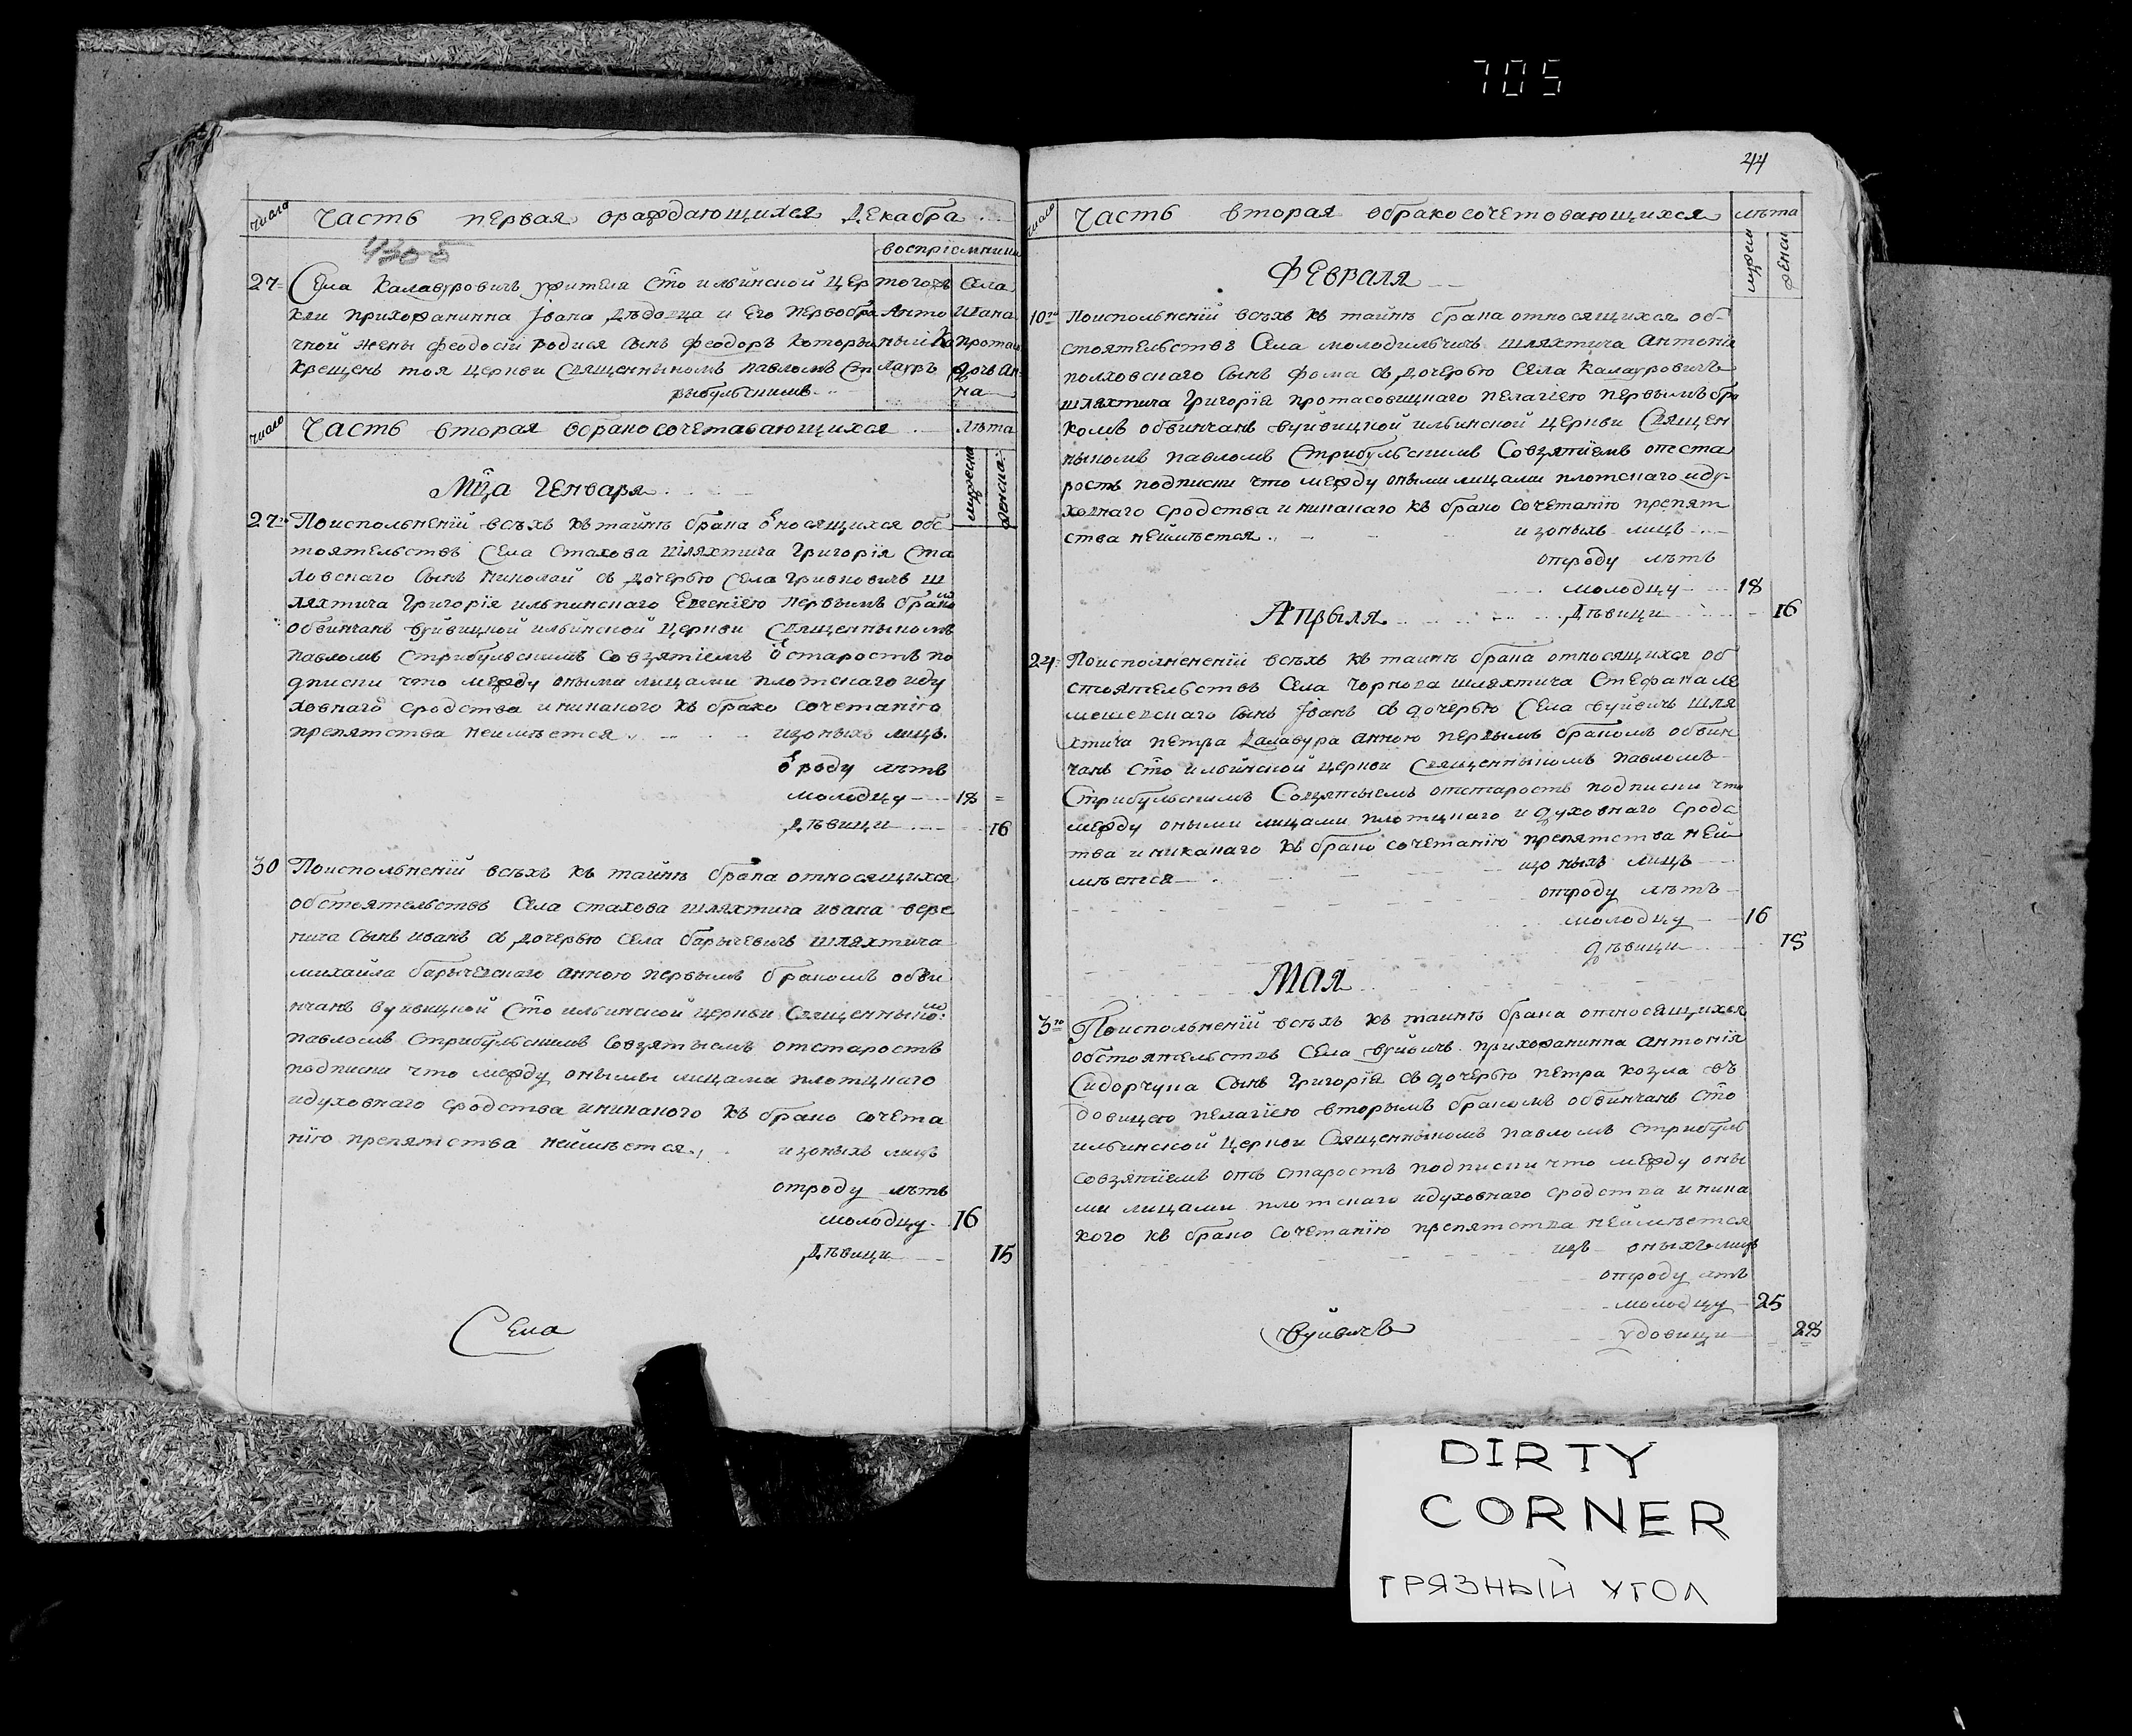 705
число Часть первая ораждающихся Декабра
4306
воспріемники
27 Села Калавуровичъ жителя Сто ильинской цер
кви прихожанина Іоана Дѣдовца и Его первобра
чной жены Феодосіи родися сынъ Феодоръ который
крещенъ тоя церкви Священникомъ Павломъ Ст
рыбульскимъ
тогожъ Села
Анто Ивана
ный Ко Прота
лавръ дочь Ан
на
число Часть вторая обракосочетавающихся лѣта
мужеска женска
Мца Генваря
27 Поисполненіи всѣхъ къ тайнѣ брака относящихся обс
тоятельствъ Села Стахова шляхтича Григорія Ста
ховскаго сынъ Николай съ дочерью Села Гривковичъ ш
ляхтича Григорія ильпинскаго Евгеніею первымъ бракомъ
обвинчанъ вуйвицкой ильинской церкви Священникомъ
Павломъ Стрибульскимъ Совзятіемъ от старостъ по
дписки что между оными лицами плотскаго иду
ховнаго сродства иникакого къ брако сочетанію
препятства неимѣется изоныхъ лицъ
от роду лѣтъ
молодцу 18
Дѣвици 16
30 Поисполненіи всѣхъ къ тайнѣ брака относящихся
обстоятельствъ Села стахова шляхтича ивана вере
нича сынъ иванъ съ дочерью Села барычевичъ шляхтича
михайла барычевскаго анною первымъ бракомъ обви
нчанъ вуивицкой Сто ильинской церкви Священникомъ
павломъ Стрибульскимъ Совзятыемъ отстаростъ
подписки что между оными лицами плотцкаго
идуховнаго сродства иникакого къ брако сочета
нію препятства неимѣется изоныхъ лицъ
отроду лѣтъ
молодцу 16
Дѣвици 15
Села
44
число Часть вторая обракосочетовающихся лѣта
мужеск женск
Февраля
10го Поисполненіи всѣхъ къ тайнѣ брака относящихся об
стоятельствъ Села молодильчичъ шляхтича Антонія
полховскаго сынъ Фома съ дочерью Села Калауровичъ
шляхтича Григорія протасовицкаго пелагіею первымъ бра
комъ обвинчанъ вуйвицкой ильинской церкви Священ
никомъ павломъ Стрибульскимъ Совзятіемъ отста
ростъ подписки что между оными лицами плотскаго иду
ховнаго сродства иникакаго къ брако сочетанію препят
ства неимѣется изоныхъ лицъ
отроду лѣтъ
молодцу 18
Апрыля Дѣвици 16
24 Поисполнененіи всѣхъ къ таинѣ брака относящихся об
стоятельствъ Села Чорнова шляхтича Стефана ле
мешевскаго сынъ Іванъ съ дочерью Села вуйвичъ шля
хтича петра Калавура анною первымъ бракомъ обвин
чанъ Сто ильинской церкви Священникомъ павломъ
Стрибульскимъ Совзятыемъ отстаростъ подписки что
между оными лицами плотцкаго и духовнаго сродс
тва и никакаго къ брако сочетанію препятства неи
мѣется изоныхъ лицъ
отроду лѣтъ
молодцу 16
дѣвици 15
Мая
3го Поисполненіи всѣхъ къ таинѣ брака относящихся
обстоятельствъ Села вуйвичъ прихожанина антонія
Сидорчука сынъ Григорія съ дочерью петра козла въ
довицею пелагіею вторымъ бракомъ обвинчанъ Сто
ильинской церкви Священникомъ павломъ Стрибуль
совзятіемъ отъ старостъ подписки что между оны
ми лицами плотскаго идуховнаго сродства и ника
кого къ брако сочетанію препятства неимѣется
изъ оныхъ лицъ
отроду лѣтъ
молодцу 25
вуйвичъ удовици 28
DIRTY
CORNER
ГРЯЗНЫЙ УГОЛ